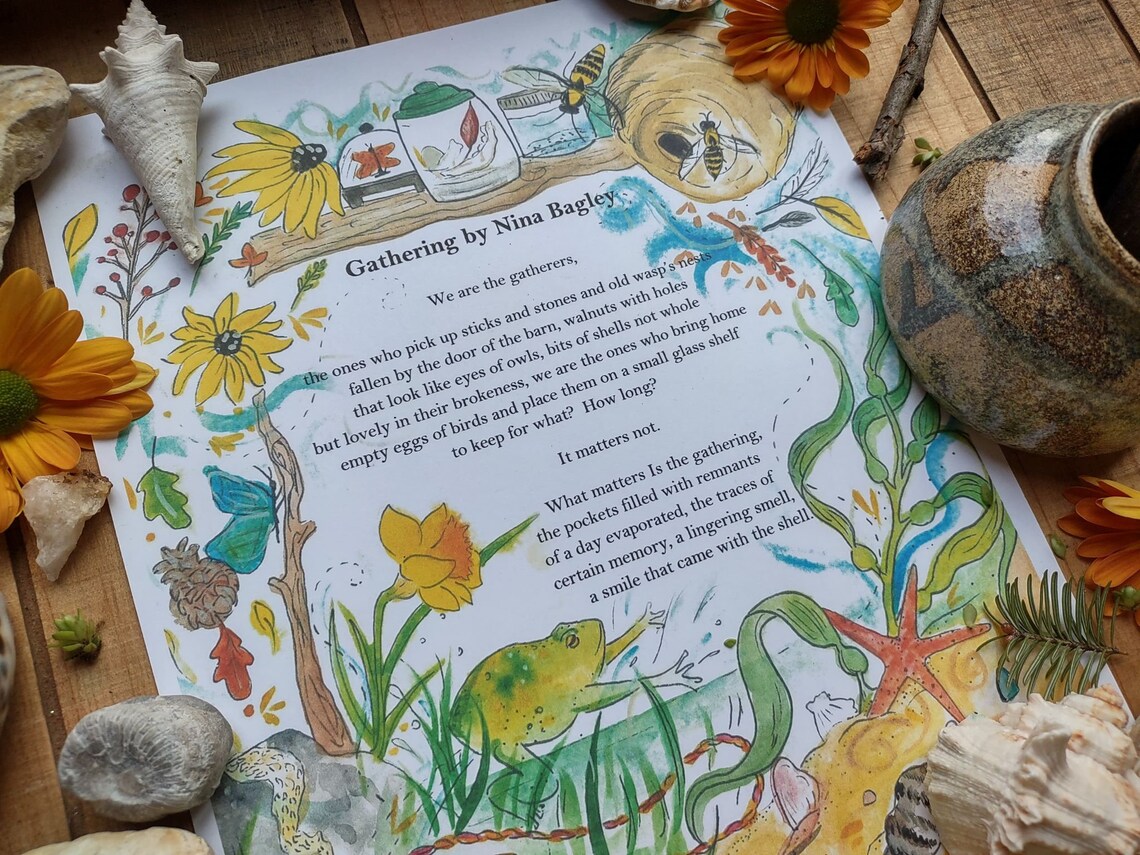 Gathering by Nina Bagley
We are the gatherers,
the ones who pick up sticks and stones and old wasp's nests
fallen by the door of the barn, walnuts with holes
that look like eyes of owls, bits of shells not whole
but lovely in their brokeness, we are the ones who bring home
empty eggs of birds and place them on a small glass shelf
to keep for what? How long?
It matters not.
What matters Is the gathering,
the pockets filled with remnants
of a day evaporated, the traces of
certain memory, a lingering smell,
a smile that came with the shell.